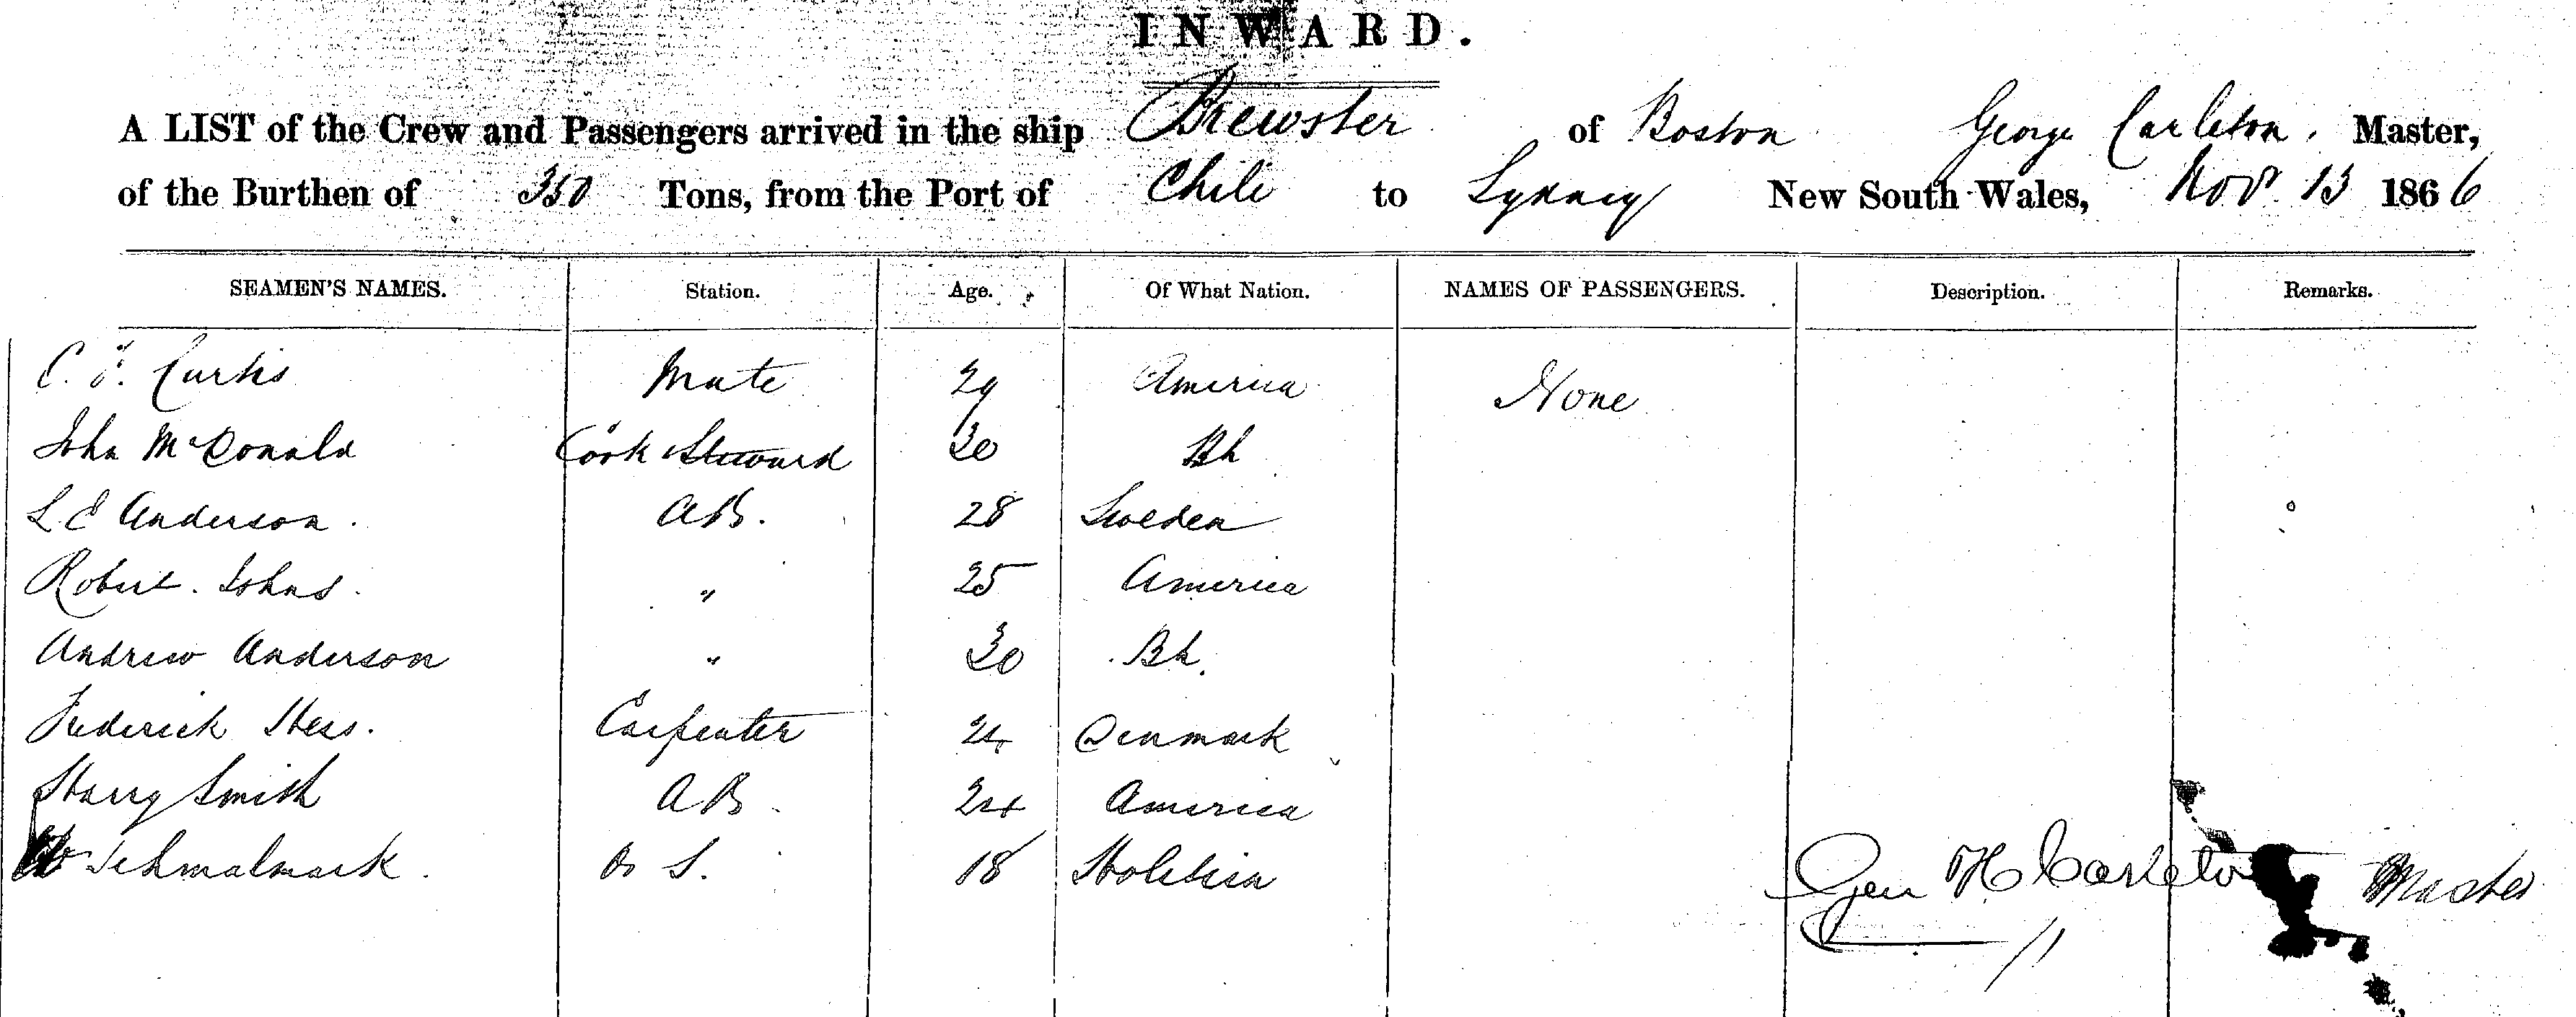 INWARD.
A LIST of the Crew and Passengers arrived in the ship Brewster of Boston George Carleton. Master,
of the Burthen of 350 Tons, from the Port of Chili to Sydney New South Wales, Nov. 13 1866
SEAMEN'S NAMES. Station. Age. Of What Nation. NAMES OF PASSENGERS. Description. Remarks.
C. F. Curtis Mate 29 America None
John McDonald Cook Steward 30 Bh
L. E Anderson. A.B. 28 Sweden
Robert. Johns. " 25 America
Andrew Anderson " 30 Bh.
Frederick Hess. Carpenter 24 Denmark
Harry Smith A B. 24 America
Schmalmack. O S. 18 Holstein
Geo H Carleton Master